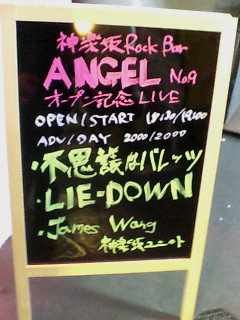 神楽坂Rock Bar
ANGEL No.9
オープン記念 LIVE
OPEN/START 18:30/19:00
ADV/DAY 2000/2000
・不思議なバレッツ
・LIE-DOWN
・James Wang
神楽坂ユニット